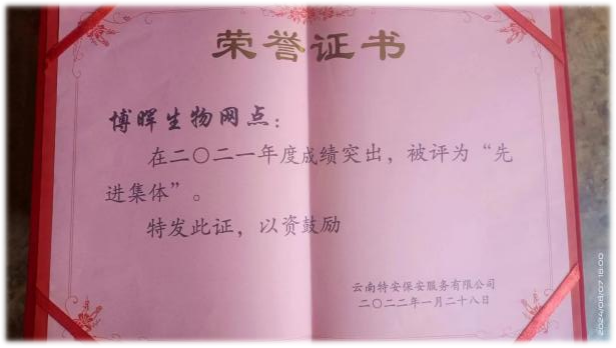 荣誉证书
博晖生物网点：
在二〇二一年度成绩突出，被评为“先
进集体”。
特发此证，以资鼓励
云南特安保安服务有限公司
二〇二二年一月二十八日
2024/08/07 18:00